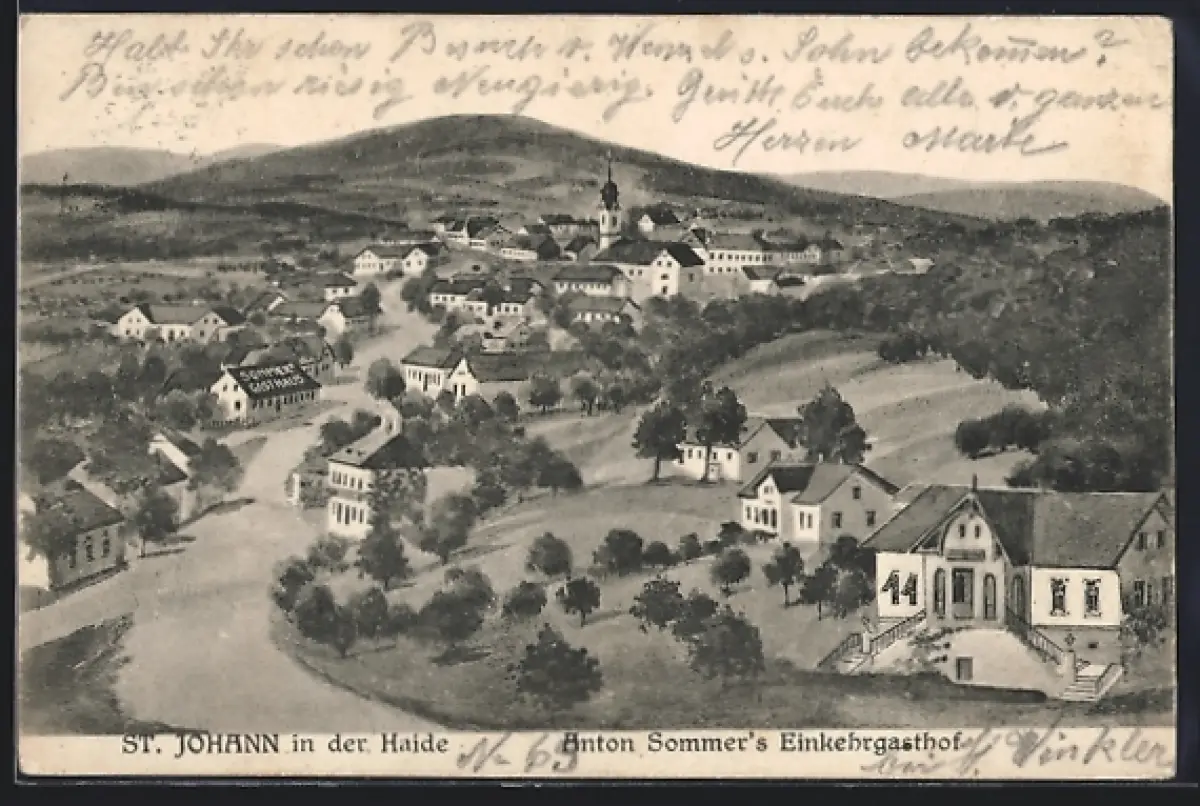 Habt Ihr schon Besuch v. Wenzel s. Sohn bekommen?
Bin schon riesig Neugierig. Grüße Euch alle v. ganzen
Herzen
SOMMER'S
GASTHAUS
11
ST. JOHANN in der Haide
No 69
Anton Sommer's Einkehrgasthof
bei J. Winkler